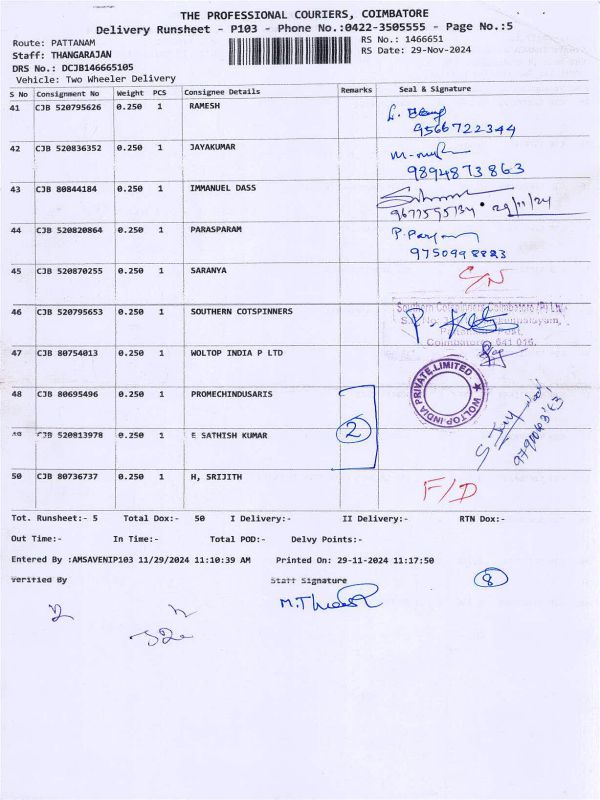 THE PROFESSIONAL COURIERS, COIMBATORE
Delivery Runsheet - P103 - Phone No.:0422-3505555 - Page No.:5
Route: PATTANAM RS No.: 1466651
Staff: THANGARAJAN RS Date: 29-Nov-2024
DRS No.: DCJB146665105
Vehicle: Two Wheeler Delivery
S No Consignment No Weight PCS Consignee Details Remarks Seal & Signature
41 CJB 520795626 0.250 1 RAMESH
9566722344
42 CJB 520836352 0.250 1 JAYAKUMAR
9894873863
43 CJB 80844184 0.250 1 IMMANUEL DASS
9677595134 29/11/24
44 CJB 520820864 0.250 1 PARASPARAM
9750998883
45 CJB 520870255 0.250 1 SARANYA
46 CJB 520795653 0.250 1 SOUTHERN COTSPINNERS
Southern Cotspinners Coimbatore (P) Ltd.,
Coimbatore - 641 016.
47 CJB 80754013 0.250 1 WOLTOP INDIA P LTD
WOLTOP INDIA PRIVATE LIMITED
48 CJB 80695496 0.250 1 PROMECHINDUSARIS
2
49 CJB 520813978 0.250 1 E SATHISH KUMAR
50 CJB 80736737 0.250 1 H, SRIJITH
F/D
Tot. Runsheet:- 5 Total Dox:- 50 I Delivery:- II Delivery:- RTN Dox:-
Out Time:- In Time:- Total POD:- Delvy Points:-
Entered By :AMSAVENIP103 11/29/2024 11:10:39 AM Printed On: 29-11-2024 11:17:50
Verified By Staff Signature
8